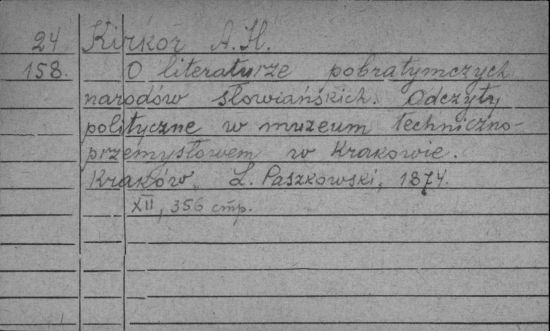 24 Kirkor A. H.
158. O literaturze pobratymczych
narodów słowiańskich. Odczyty
polityczne w muzeum techniczno-
przemysłowem w Krakowie.
Kraków, L. Paszkowski, 1874.
XII, 356 стр.